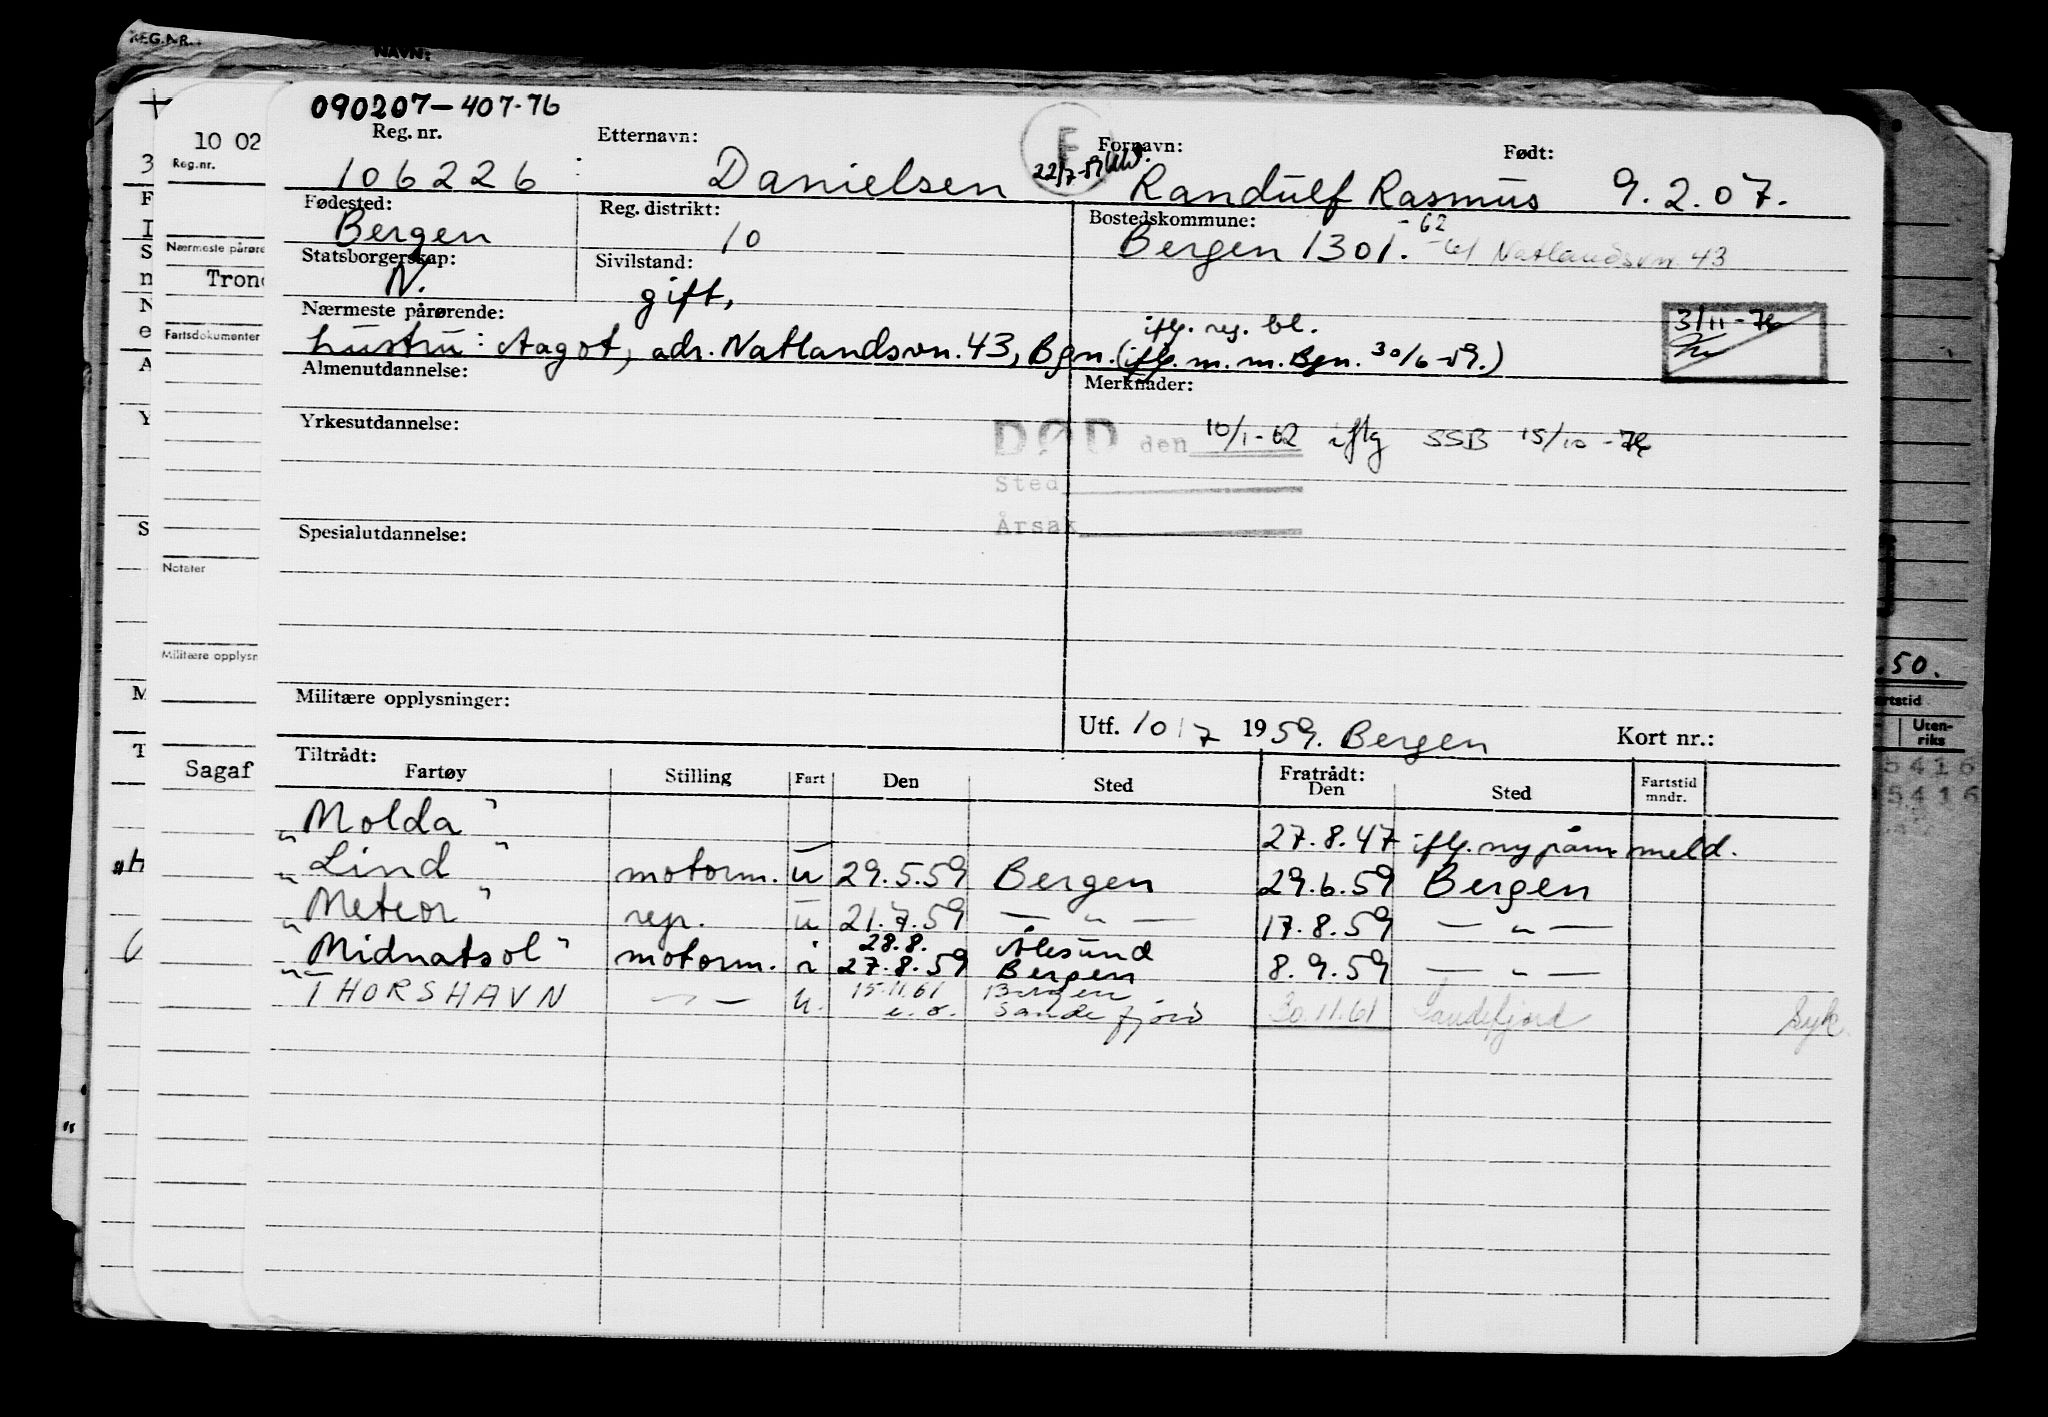 REG.NR.: NAVN:
090207-407-76
Reg. nr. Etternavn: Fornavn: Født:
106226 Danielsen 22/7-59 Randulf Rasmus 9.2.07.
F
Fødested: Reg. distrikt: Bostedskommune:
Bergen 10 Bergen 1301. -62 -61 Natlandsvn. 43
Statsborgerskap: Sivilstand:
N. gift,
Nærmeste pårørende: iflg. reg. bl. 3/11-76
hustru: Aagot, adr. Natlandsvn. 43, Bgn. (iflg. m.m. Bgn. 30/6-59.)
Almenutdannelse: Merknader:
Yrkesutdannelse: DØD den 10/1-62 iflg SSB 15/10-76
Sted
Årsak
Spesialutdannelse:
Militære opplysninger:
Utf. 10/7 1959. Bergen Kort nr.:
Tiltrådt: Fratrådt:
Fartøy Stilling Fart Den Sted Den Sted Fartstid mndr.
"Molda" 27.8.47 iflg. ny påm. meld.
"Lind" motorm. u 29.5.59 Bergen 29.6.59 Bergen
"Meteor" rep. u 21.7.59 — " — 17.8.59 — " —
28.8. Ålesund
"Midnatsol" motorm. i 27.8.59 Bergen 8.9.59 — " —
15.11.61 Bergen
"THORSHAVN — " — u. e.o. Sandefjord 30.11.61 Sandefjord Syk.
10 02
Reg.nr.
Nærmeste pårøre
Trond
Fartsdokumenter
Notater
Militære opplysn
Sagaf
.50.
artstid
Uten-
riks
5416
5416